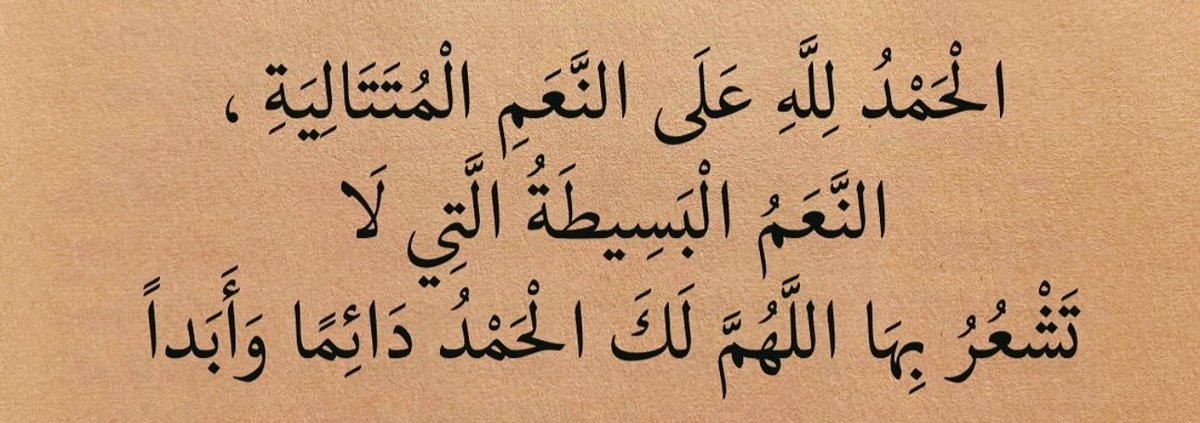 الْحَمْدُ لِلَّهِ عَلَى النَّعَمِ الْمُتَتَالِيَةِ ،
النَّعَمُ الْبَسِيطَةُ الَّتِي لَا
تَشْعُرُ بِهَا اللَّهُمَّ لَكَ الْحَمْدُ دَائِمًا وَأَبَداً